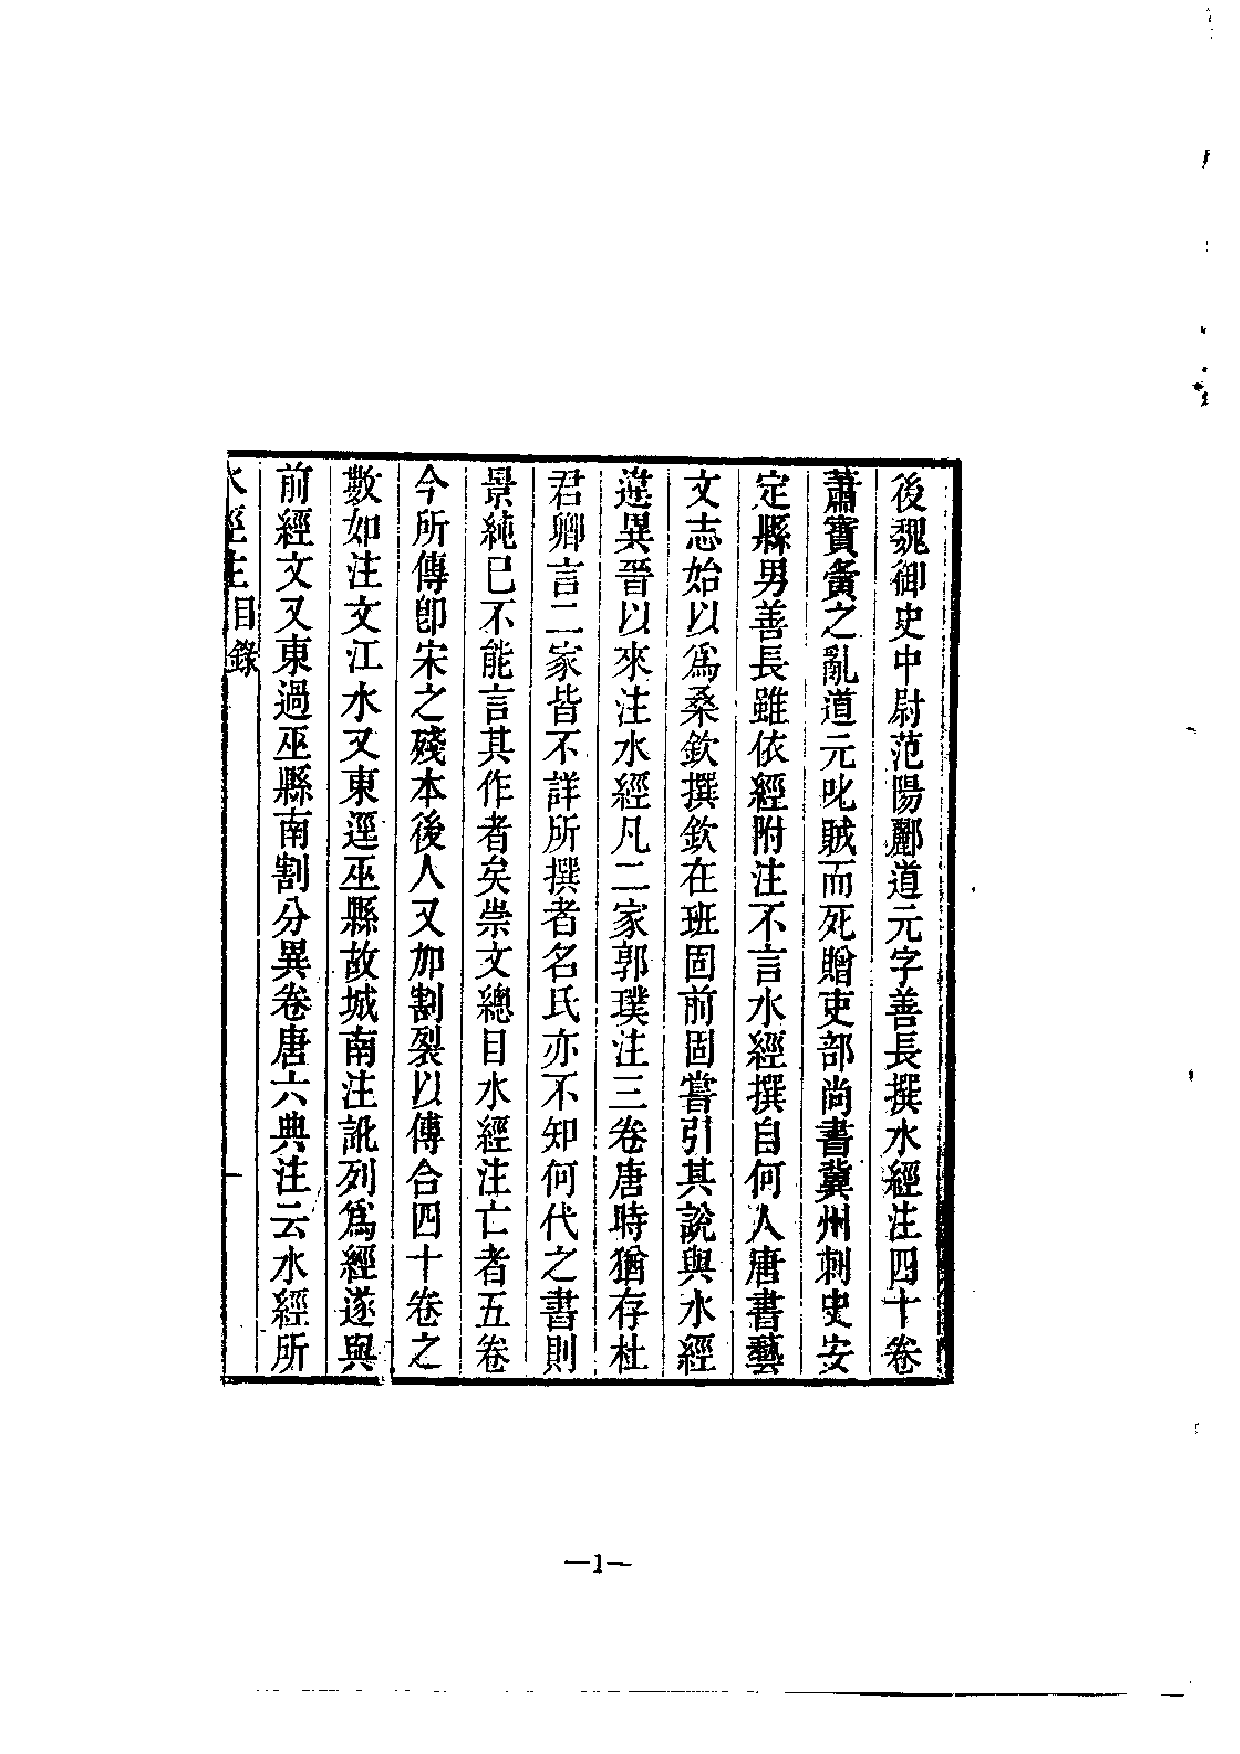 後魏御史中尉范陽酈道元字善長撰水經注四十卷
蕭寶夤之亂道元叱賊而死贈吏部尚書冀州刺史安
定縣男善長雖依經附注不言水經撰自何人唐書藝
文志始以爲桑欽撰欽在班固前固嘗引其說與水經
違異晉以來注水經凡二家郭璞注三卷唐時猶存杜
君卿言二家皆不詳所撰者名氏亦不知何代之書則
景純已不能言其作者矣崇文總目水經注亡者五卷
今所傳卽宋之殘本後人又加割裂以傅合四十卷之
數如注文江水又東逕巫縣故城南注訛列爲經遂與
前經文又東過巫縣南割分異卷唐六典注云水經所
水經注目錄
一
—1—